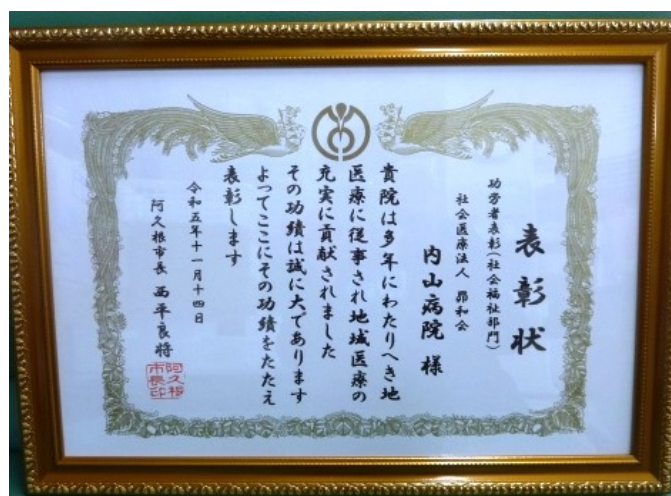 表彰状
功労者表彰(社会福祉部門)
社会医療法人 昴和会
内山病院 様
貴院は多年にわたりへき地
医療に従事され地域医療の
充実に貢献されました
その功績は誠に大であります
よってここにその功績をたたえ
表彰します
令和五年十一月十四日
阿久根市長 西平良将
阿久根
市長印